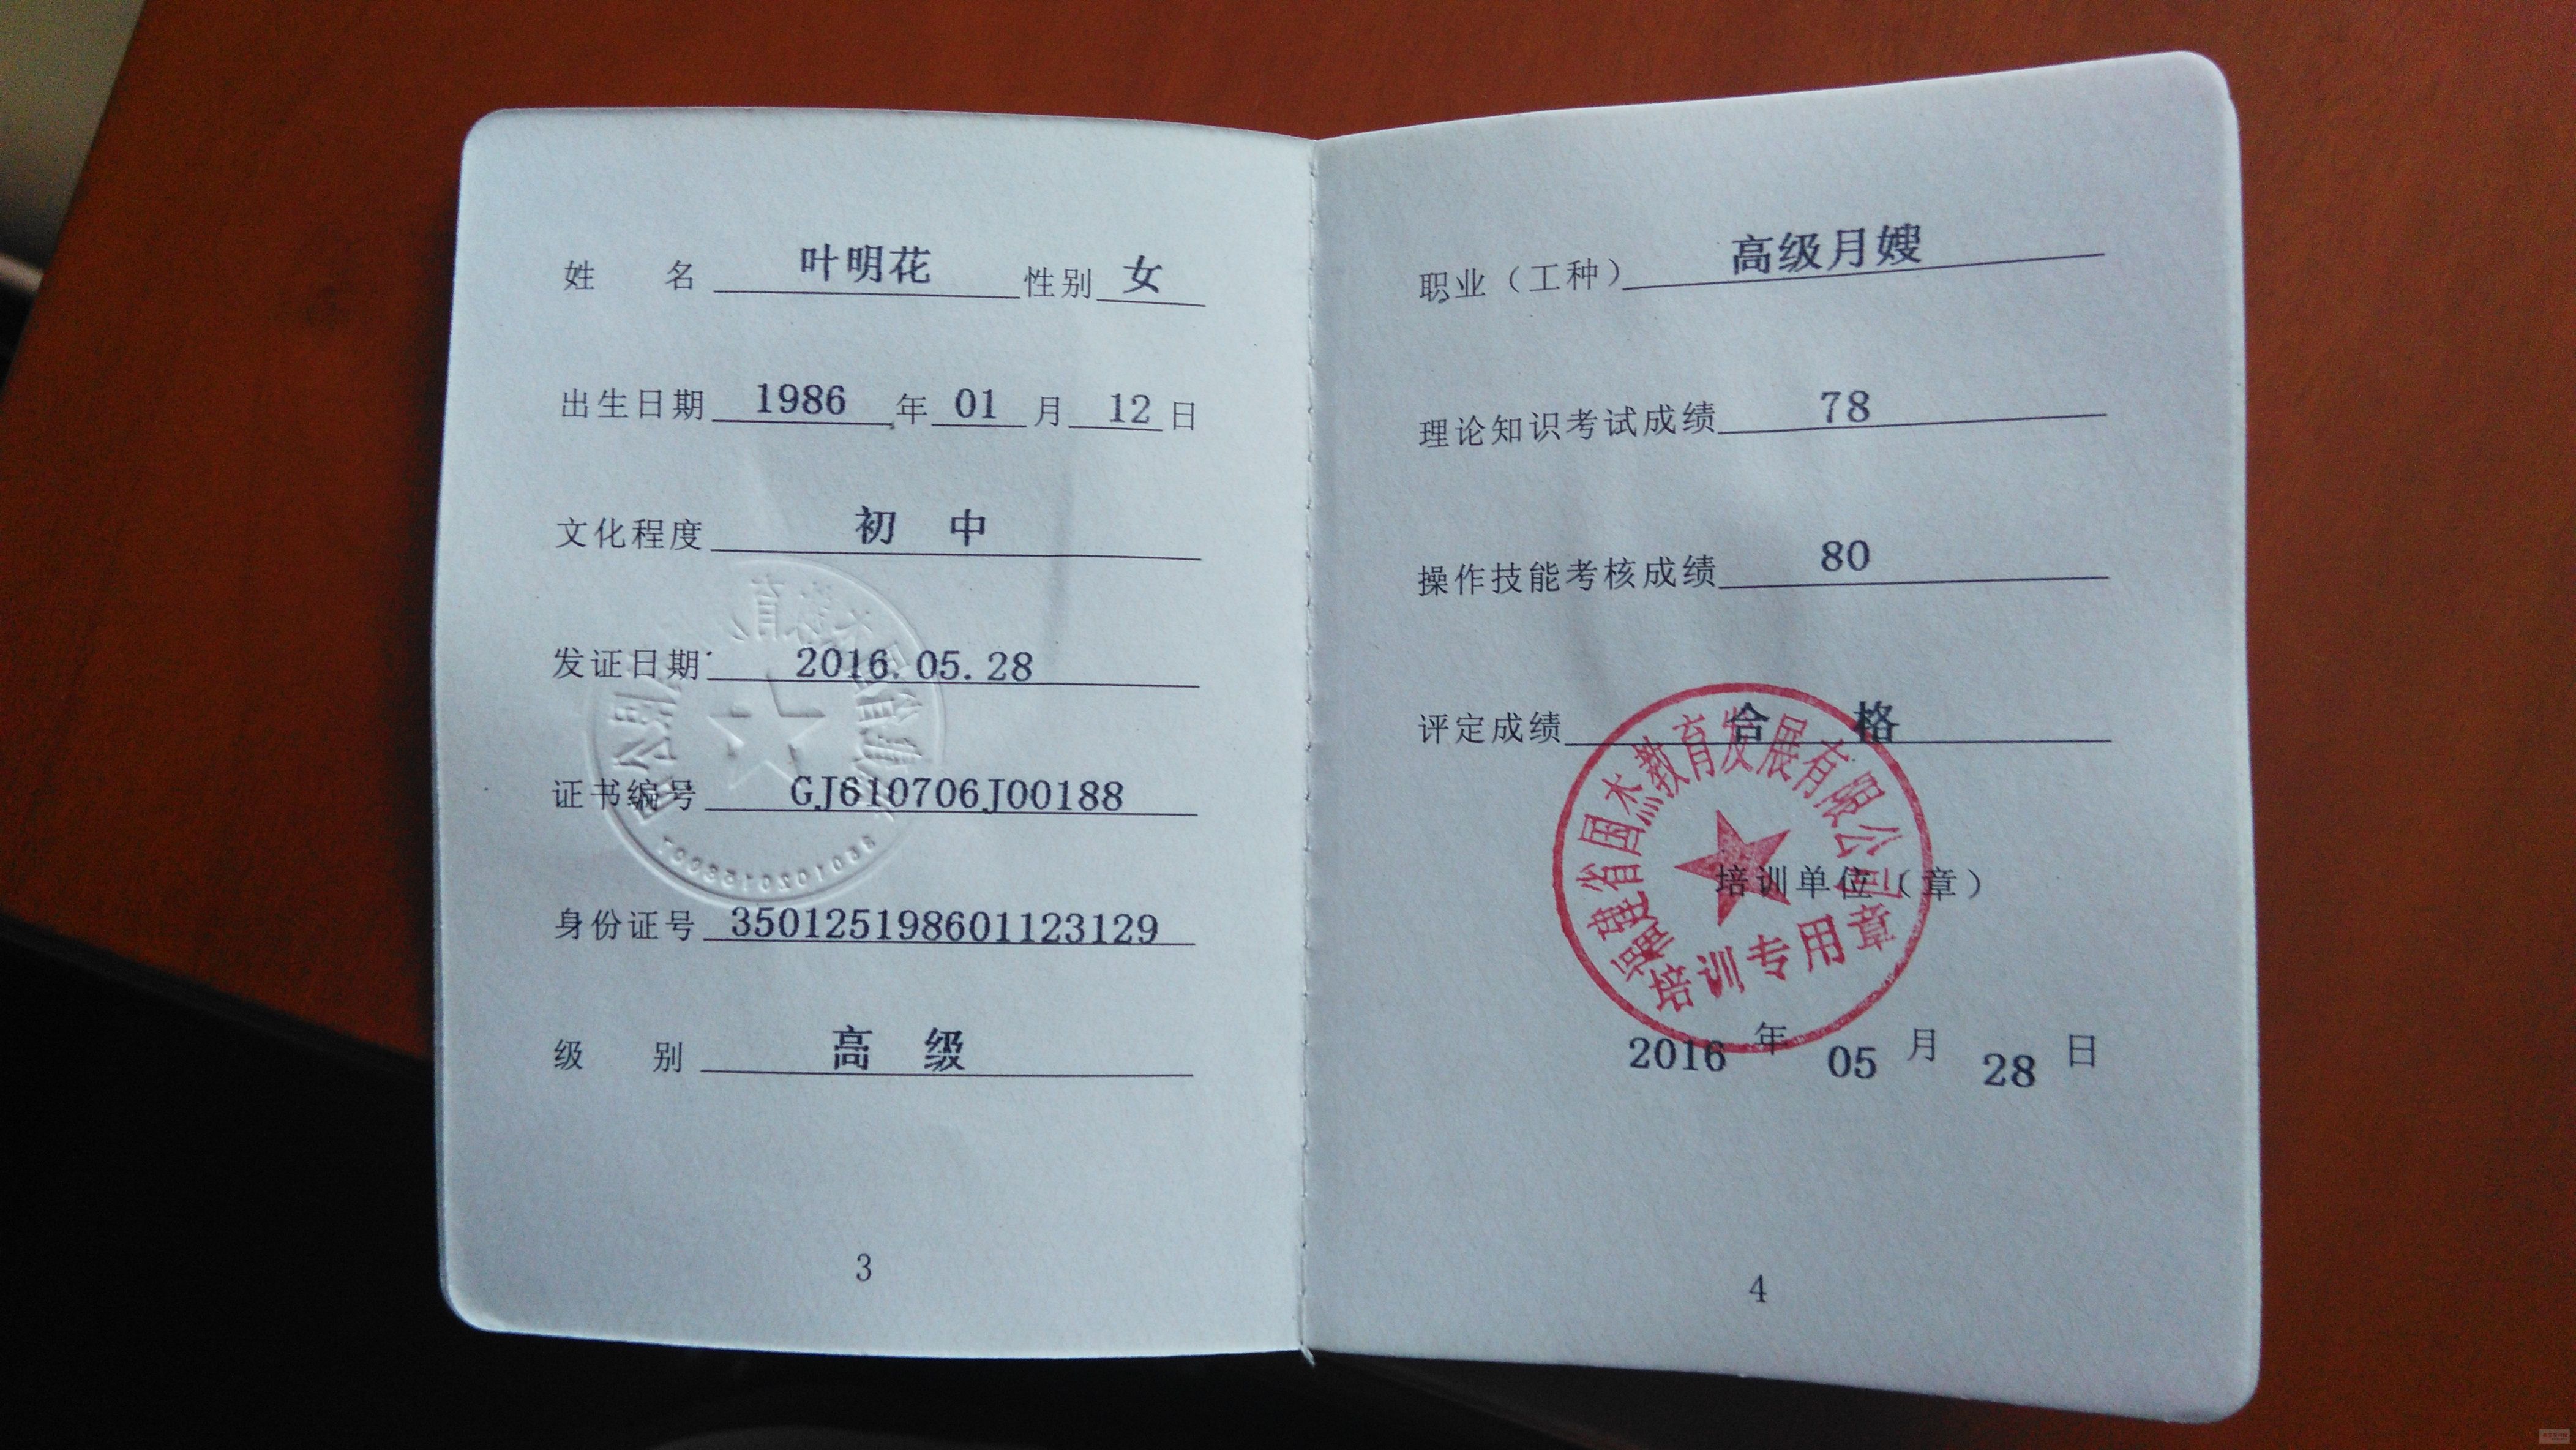 姓 名 叶明花 性别 女
出生日期 1986 年 01 月 12 日
文化程度 初 中
发证日期 2016.05.28
证书编号 GJ610706J00188
身份证号 350125198601123129
级 别 高 级
3
职业（工种） 高级月嫂
理论知识考试成绩 78
操作技能考核成绩 80
评定成绩 合 格
福建省国杰教育发展有限公司
培训单位（章）
培训专用章
2016 年 05 月 28 日
4